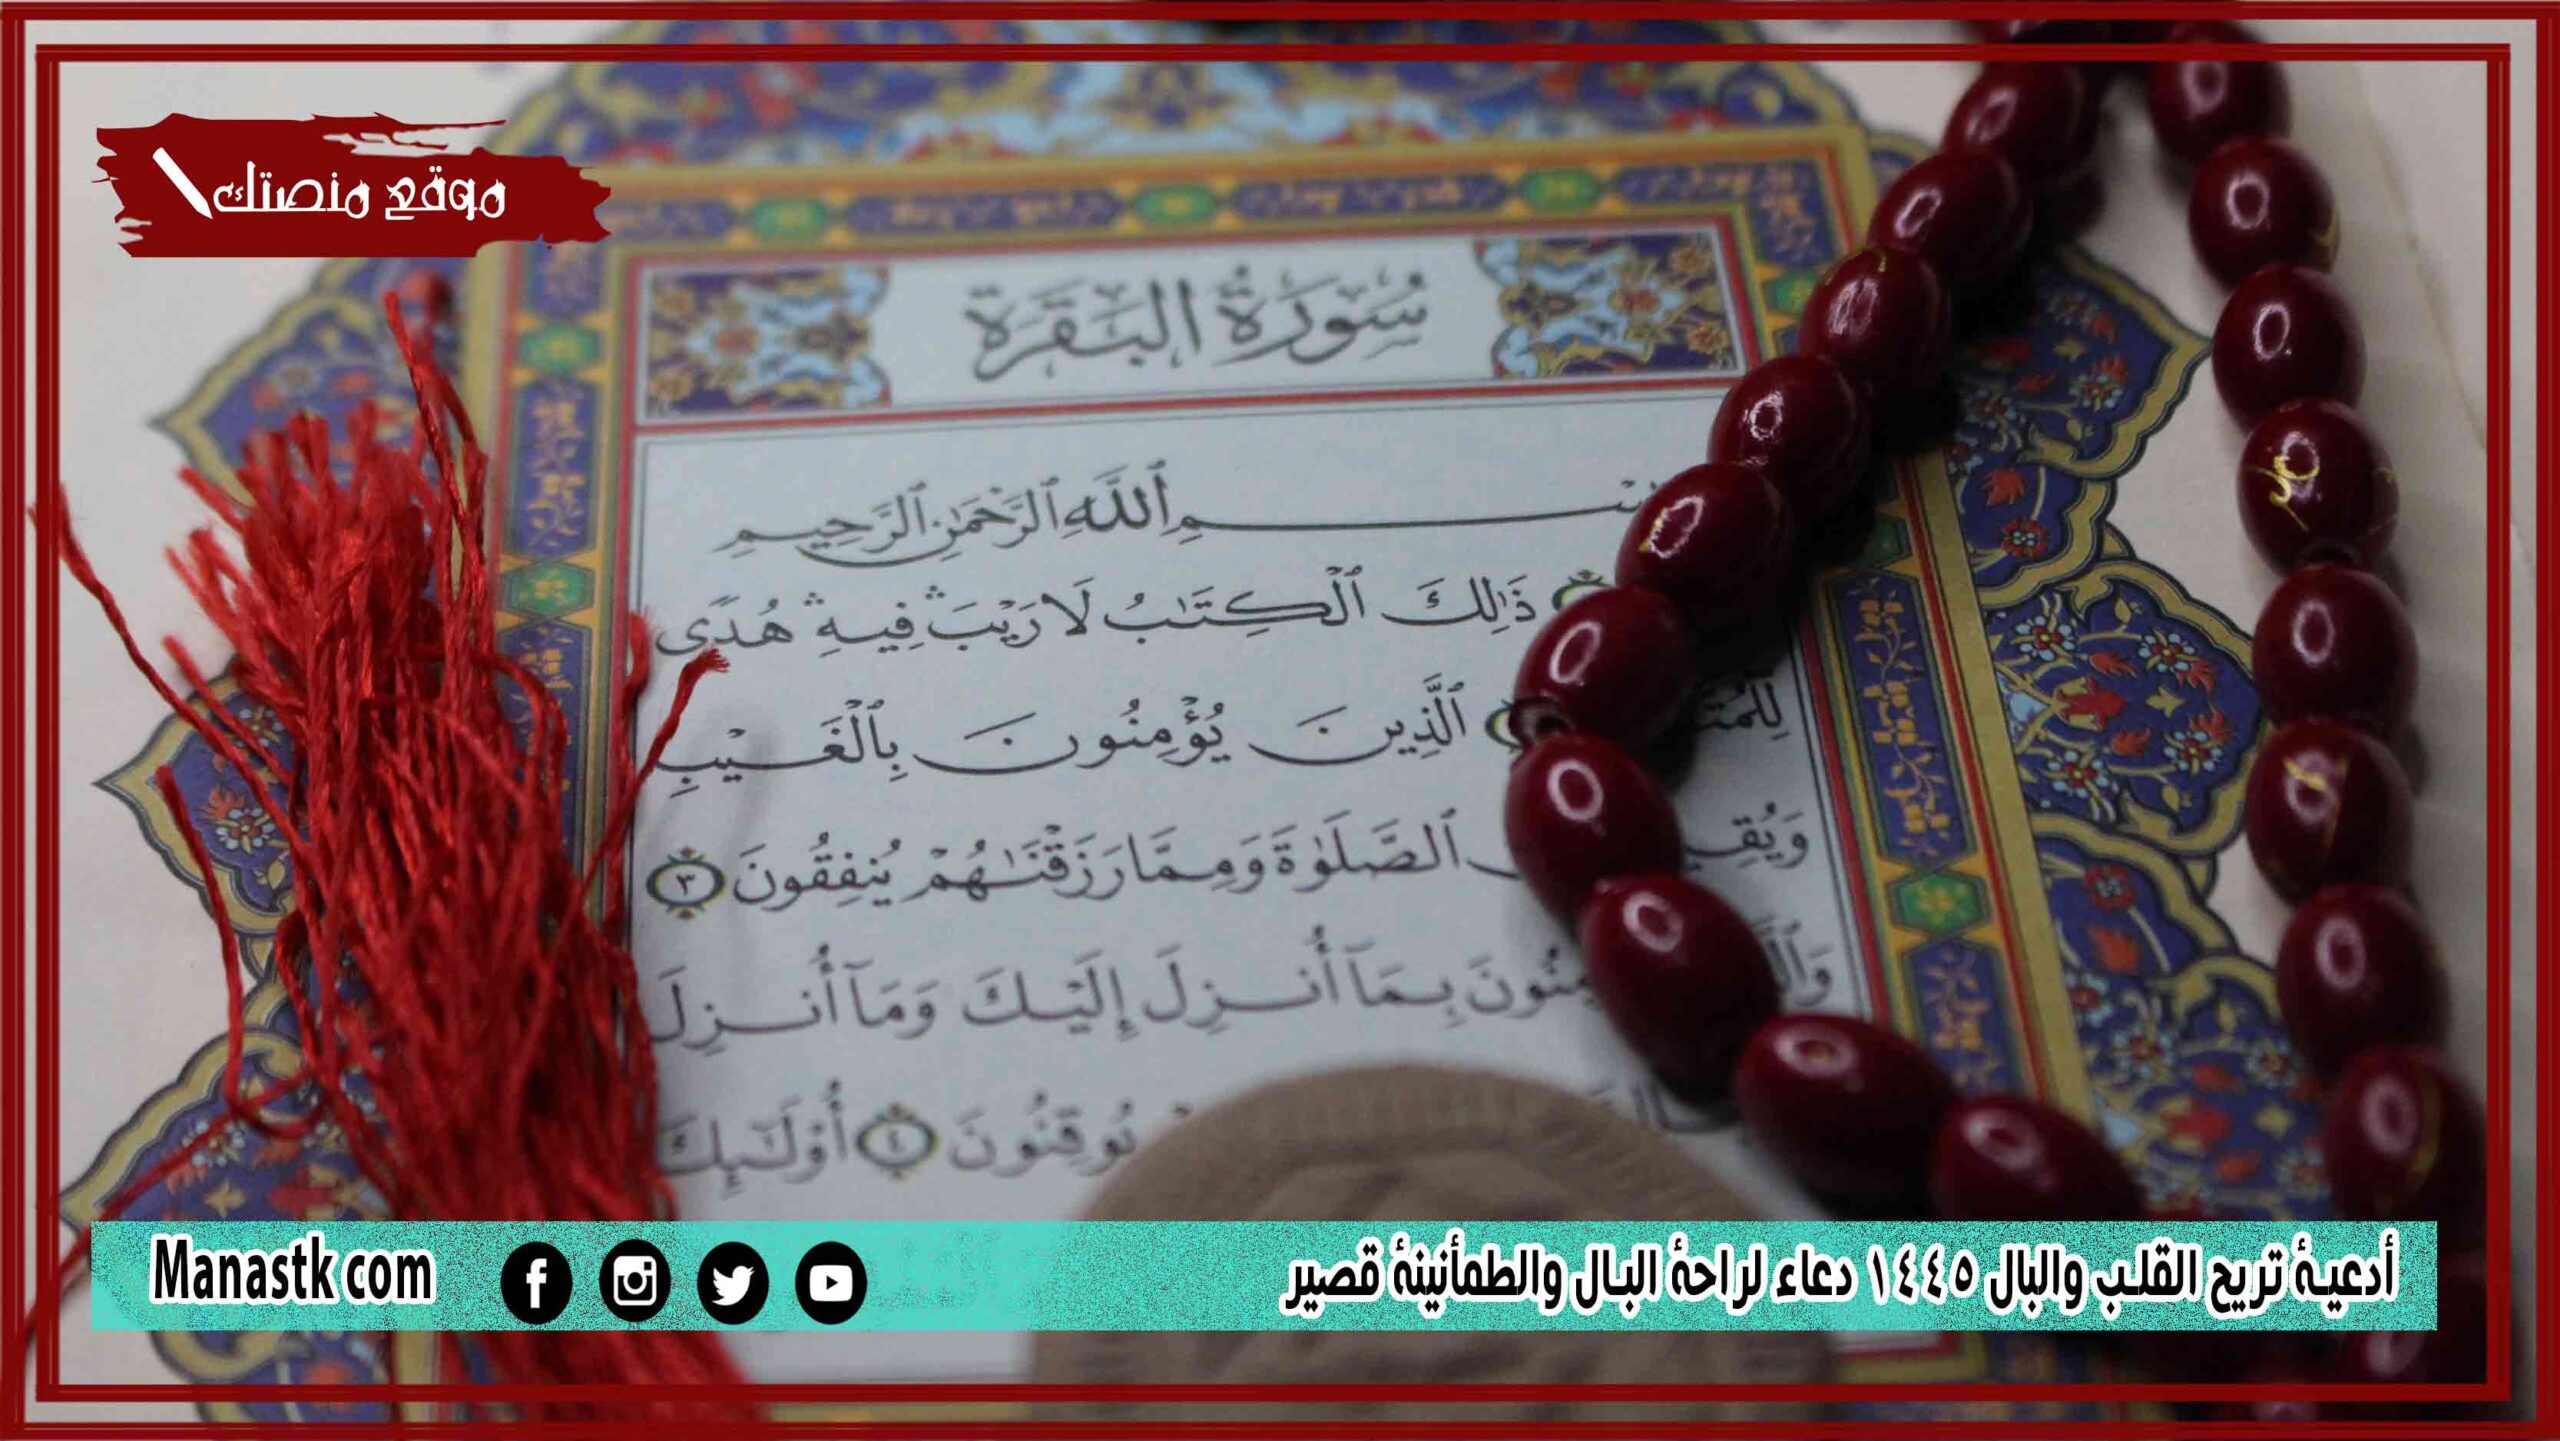 موقع منصتك
سُورَةُ البَقَرَةِ
ٱللَّهِ ٱلرَّحْمَٰنِ ٱلرَّحِيمِ
ذَٰلِكَ ٱلْكِتَٰبُ لَا رَيْبَ ۛ فِيهِ ۛ هُدًى
ٱلَّذِينَ يُؤْمِنُونَ بِٱلْغَيْبِ
ٱلصَّلَوٰةَ وَمِمَّا رَزَقْنَٰهُمْ يُنفِقُونَ ٣
بِمَآ أُنزِلَ إِلَيْكَ وَمَآ أُنزِلَ
يُوقِنُونَ ٤ أُو۟لَٰٓئِكَ
أدعية تريح القلب والبال ١٤٤٥ دعاء لراحة البال والطمأنينة قصير
Manastk com